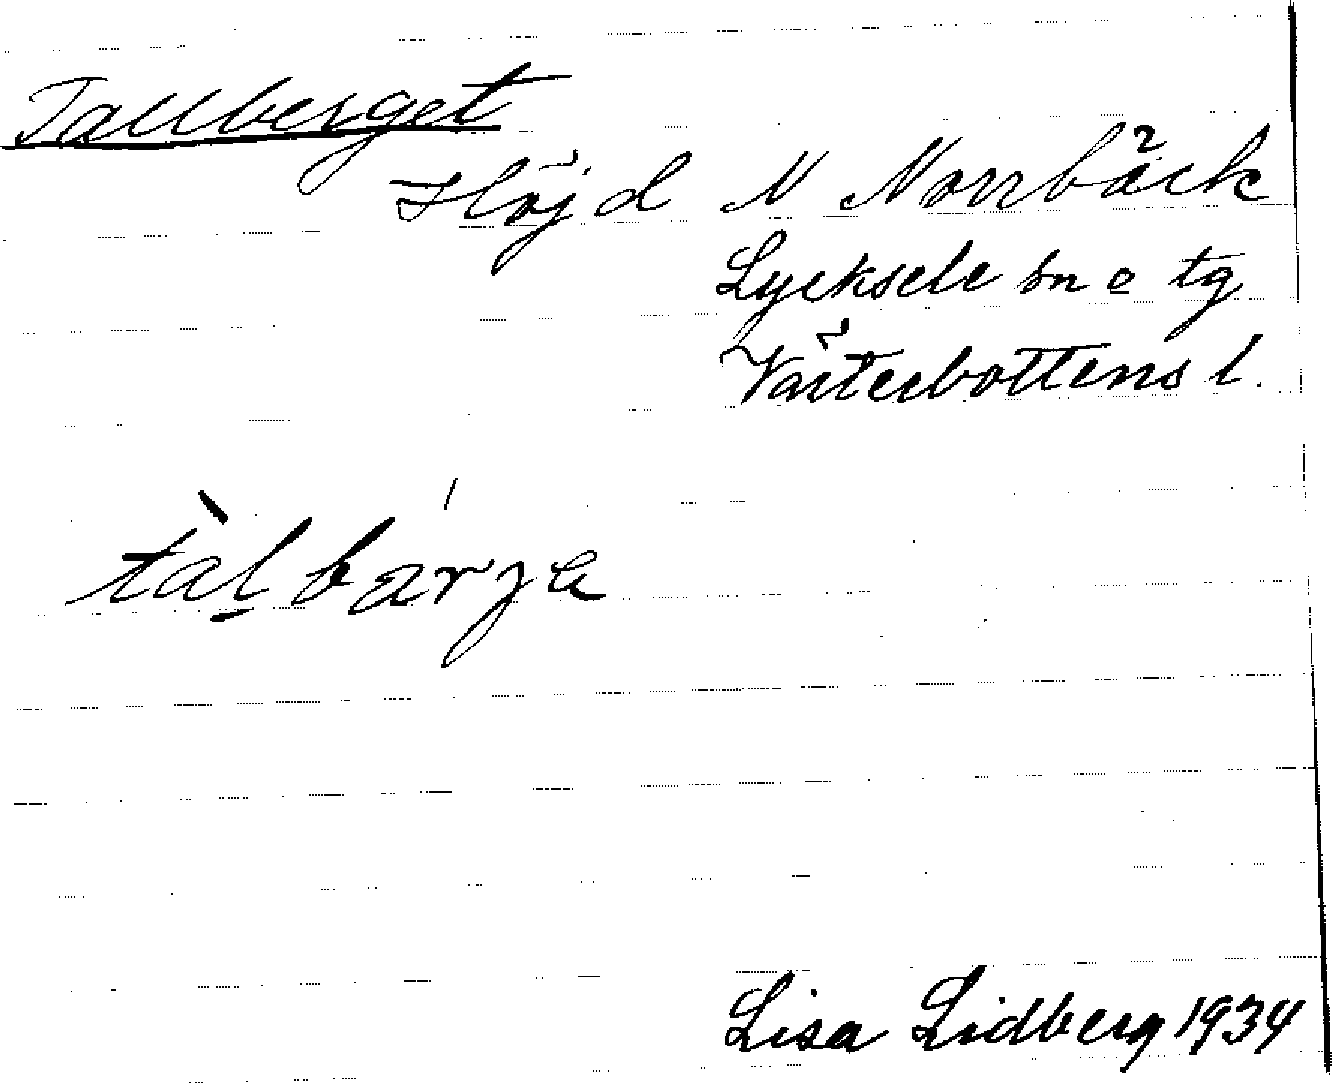 Tallberget
Höjd N Norrbäck
Lycksele sn o tg
Västerbottens l.
tàl̠bárja
Lisa Lidberg 1934